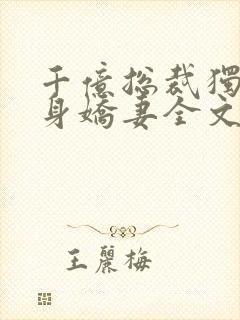 千億總裁獨
身嬌妻全文
王麗梅